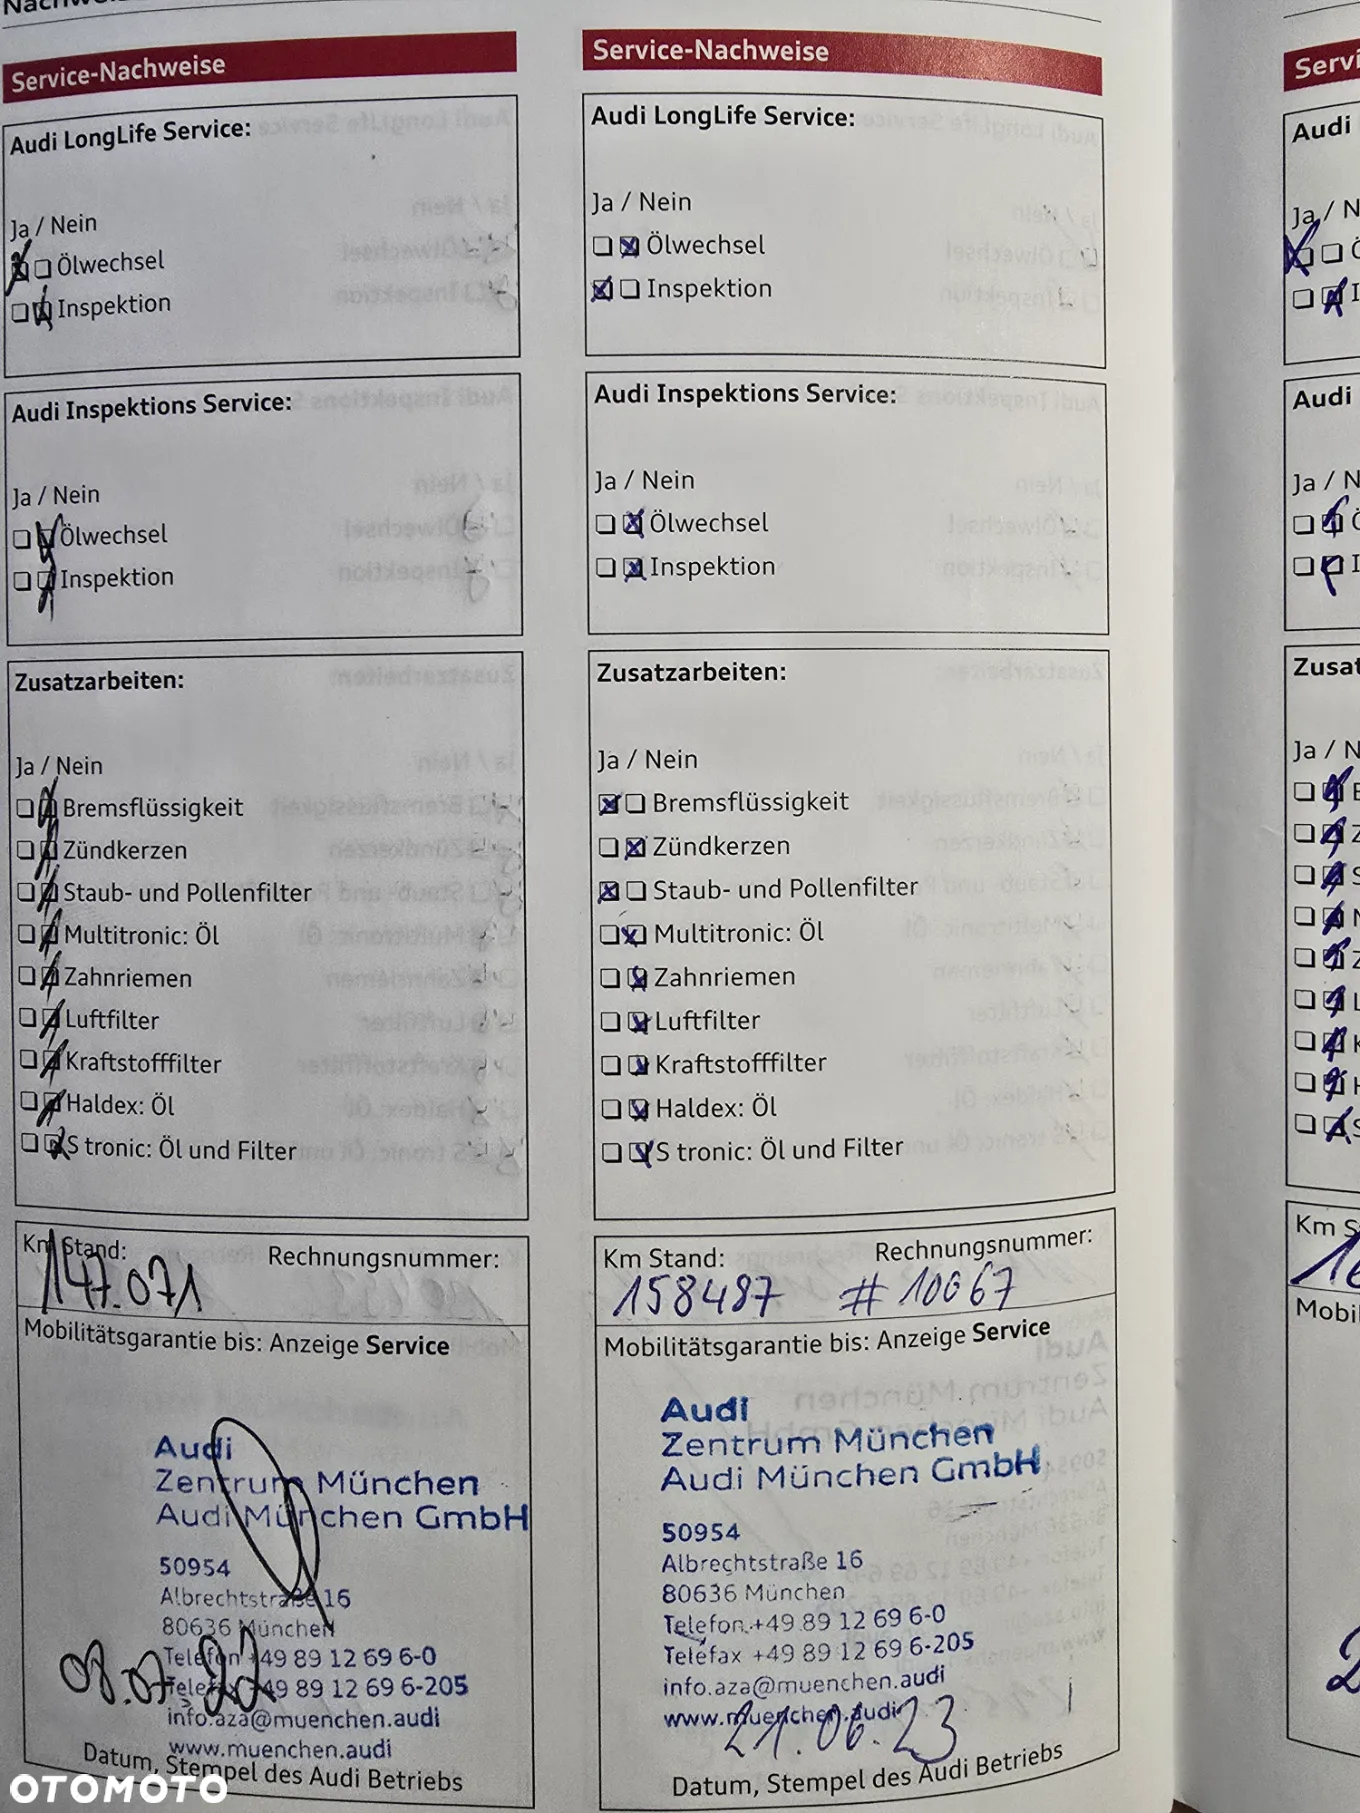 Service-Nachweise
Audi LongLife Service:
Ja / Nein
Ölwechsel
Inspektion
Audi Inspektions Service:
Ja / Nein
Ölwechsel
Inspektion
Zusatzarbeiten:
Ja / Nein
Bremsflüssigkeit
Zündkerzen
Staub- und Pollenfilter
Multitronic: Öl
Zahnriemen
Luftfilter
Kraftstofffilter
Haldex: Öl
S tronic: Öl und Filter
Km Stand: Rechnungsnummer:
147.071
Mobilitätsgarantie bis: Anzeige Service
Audi
Zentrum München
Audi München GmbH
50954
Albrechtstraße 16
80636 München
Telefon +49 89 12 69 6-0
Telefax +49 89 12 69 6-205
08.07.22
info.aza@muenchen.audi
www.muenchen.audi
Datum, Stempel des Audi Betriebs
Service-Nachweise
Audi LongLife Service:
Ja / Nein
Ölwechsel
Inspektion
Audi Inspektions Service:
Ja / Nein
Ölwechsel
Inspektion
Zusatzarbeiten:
Ja / Nein
Bremsflüssigkeit
Zündkerzen
Staub- und Pollenfilter
Multitronic: Öl
Zahnriemen
Luftfilter
Kraftstofffilter
Haldex: Öl
S tronic: Öl und Filter
Km Stand: Rechnungsnummer:
158487 #10067
Mobilitätsgarantie bis: Anzeige Service
Audi
Zentrum München
Audi München GmbH
50954
Albrechtstraße 16
80636 München
Telefon +49 89 12 69 6-0
Telefax +49 89 12 69 6-205
info.aza@muenchen.audi
www.muenchen.audi
21.06.23
Datum, Stempel des Audi Betriebs
Audi
Ja / N
Audi
Ja / N
Ja / N
Km S
OTOMOTO